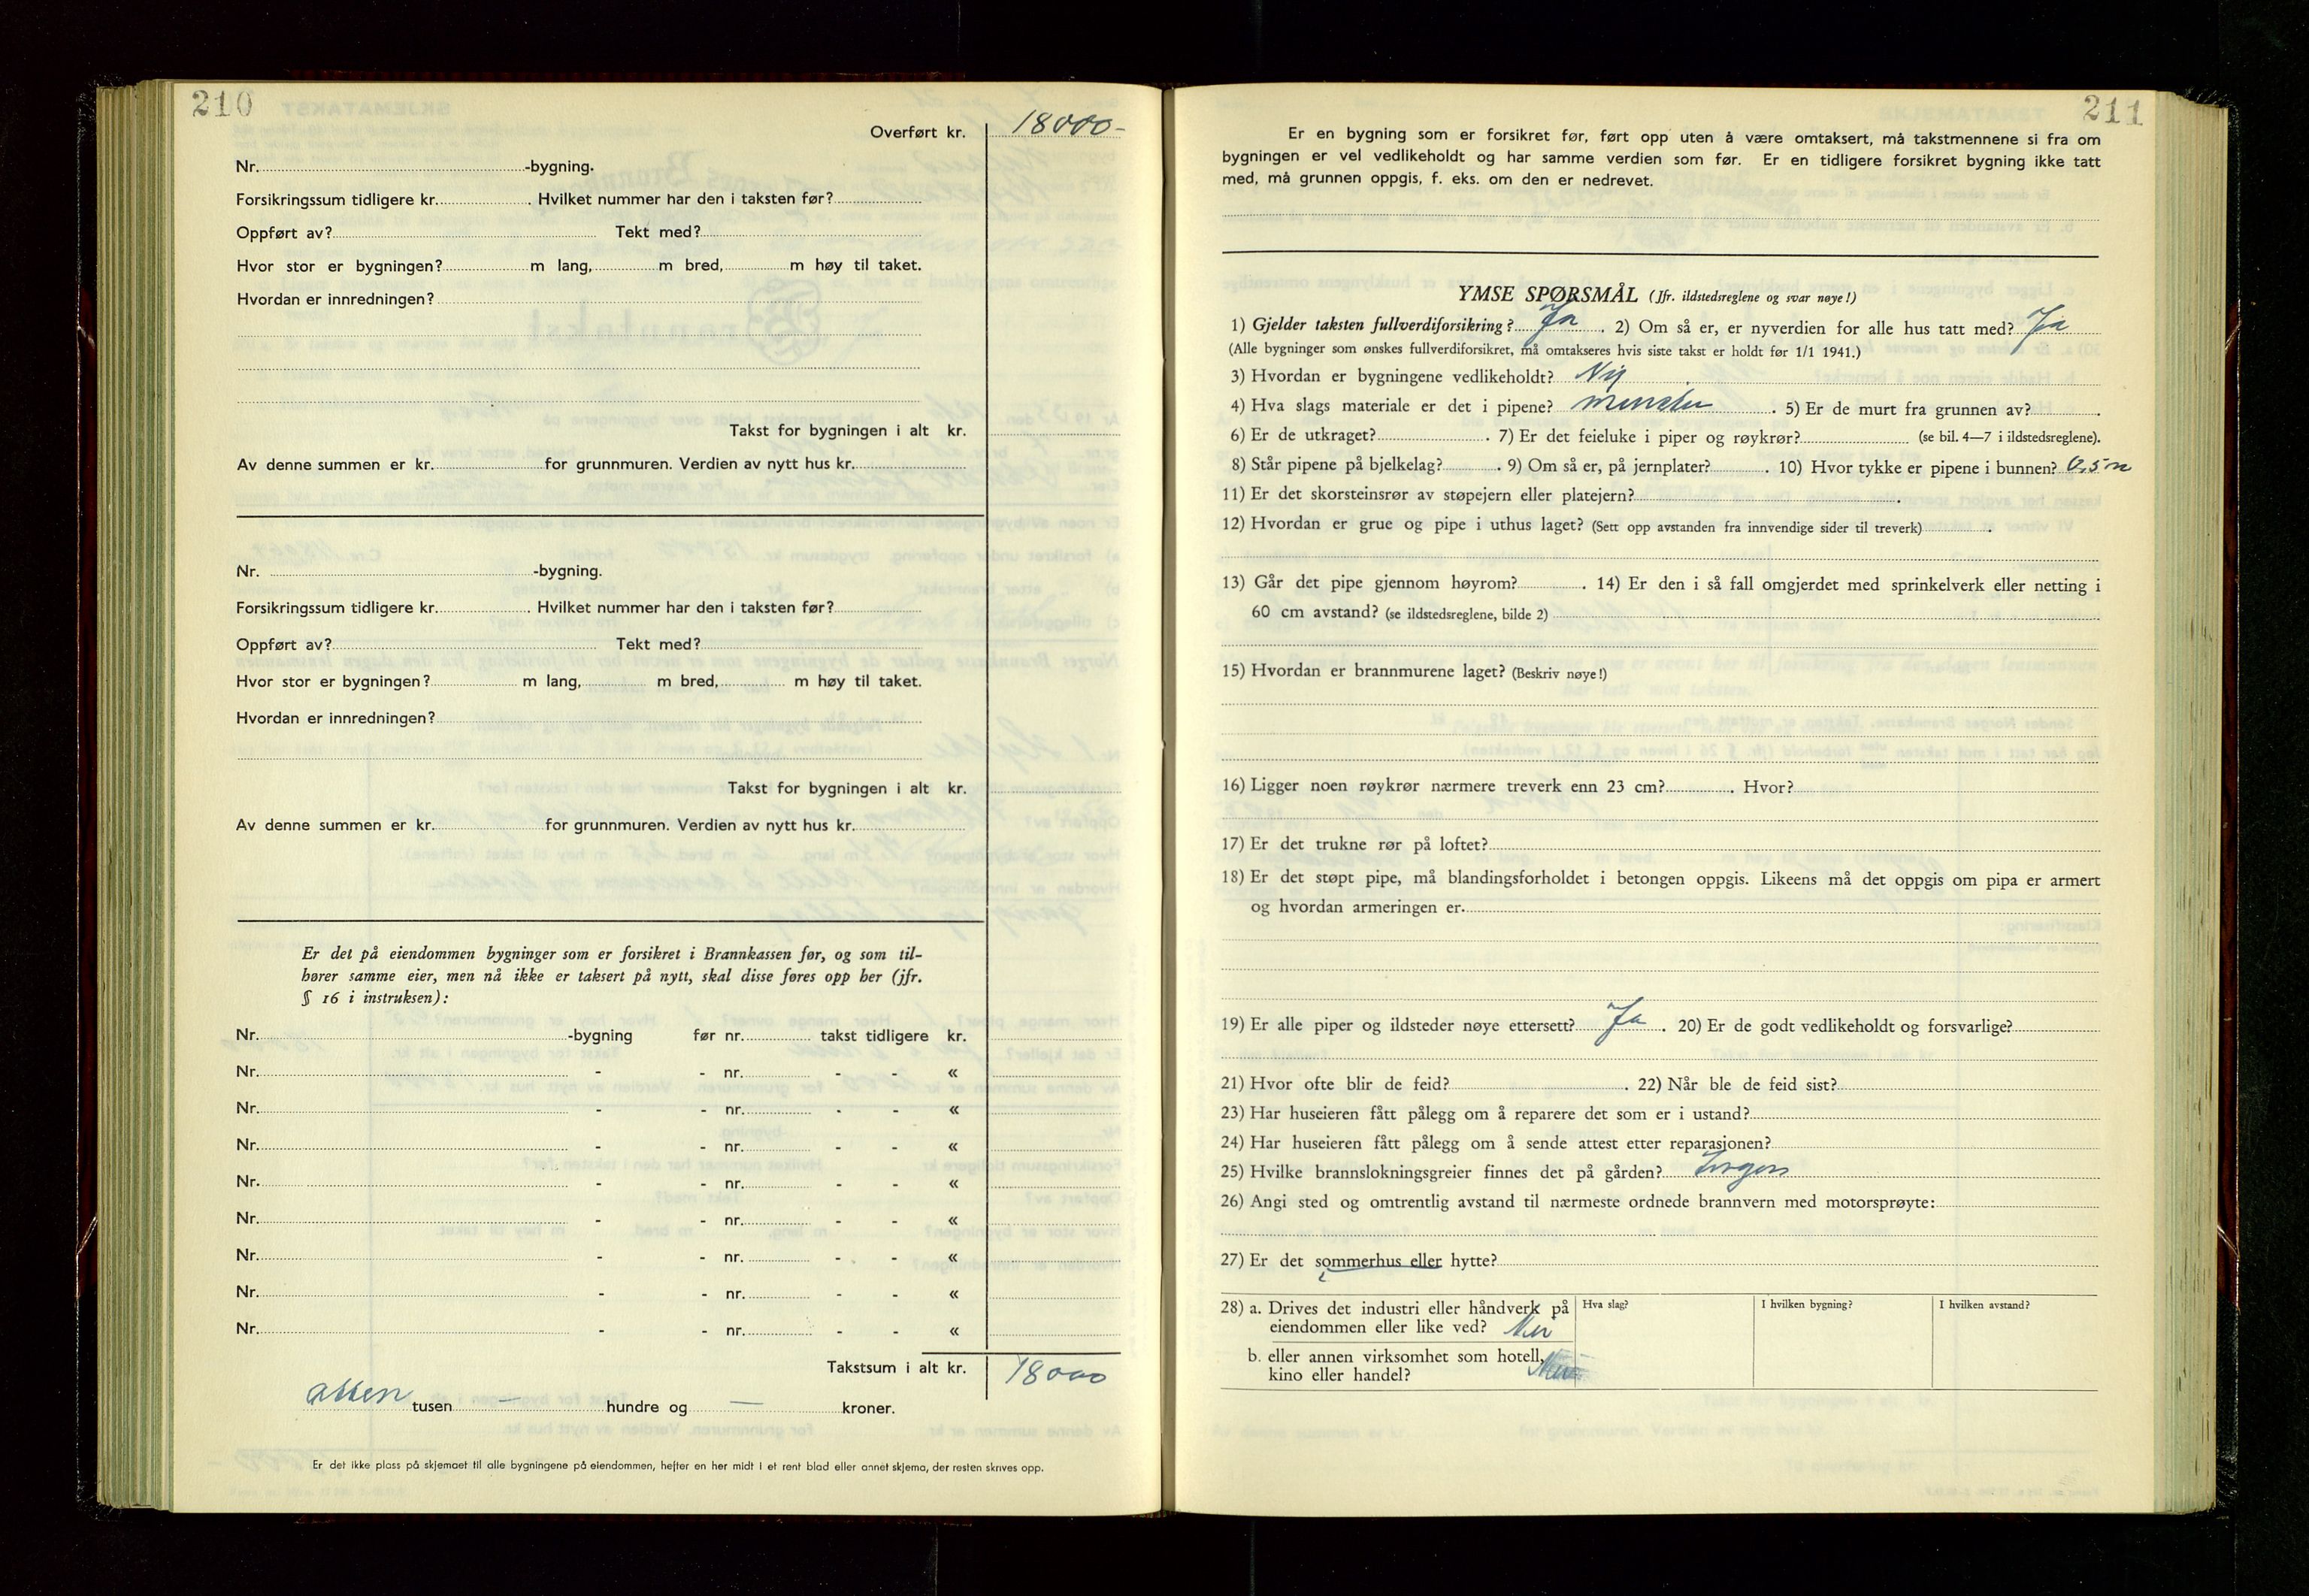 210
Overført kr. 18000-
Nr. -bygning.
Forsikringssum tidligere kr. . Hvilket nummer har den i taksten før?
Oppført av? Tekt med?
Hvor stor er bygningen? m lang, m bred, m høy til taket.
Hvordan er innredningen?
Takst for bygningen i alt kr.
Av denne summen er kr. for grunnmuren. Verdien av nytt hus kr.
Nr. -bygning.
Forsikringssum tidligere kr. . Hvilket nummer har den i taksten før?
Oppført av? Tekt med?
Hvor stor er bygningen? m lang, m bred, m høy til taket.
Hvordan er innredningen?
Takst for bygningen i alt kr.
Av denne summen er kr. for grunnmuren. Verdien av nytt hus kr.
Er det på eiendommen bygninger som er forsikret i Brannkassen før, og som til-
hører samme eier, men nå ikke er taksert på nytt, skal disse føres opp her (jfr.
§ 16 i instruksen):
Nr. -bygning før nr. takst tidligere kr.
Nr. - - nr. - - «
Nr. - - nr. - - «
Nr. - - nr. - - «
Nr. - - nr. - - «
Nr. - - nr. - - «
Nr. - - nr. - - «
Nr. - - nr. - - «
Nr. - - nr. - - «
Takstsum i alt kr. 18000
atten tusen — hundre og — kroner.
Er det ikke plass på skjemaet til alle bygningene på eiendommen, hefter en her midt i et rent blad eller annet skjema, der resten skrives opp.
211
Er en bygning som er forsikret før, ført opp uten å være omtaksert, må takstmennene si fra om
bygningen er vel vedlikeholdt og har samme verdien som før. Er en tidligere forsikret bygning ikke tatt
med, må grunnen oppgis, f. eks. om den er nedrevet.
YMSE SPØRSMÅL (Jfr. ildstedsreglene og svar nøye!)
1) Gjelder taksten fullverdiforsikring? Ja . 2) Om så er, er nyverdien for alle hus tatt med? Ja
(Alle bygninger som ønskes fullverdiforsikret, må omtakseres hvis siste takst er holdt før 1/1 1941.)
3) Hvordan er bygningene vedlikeholdt? Ny .
4) Hva slags materiale er det i pipene? . 5) Er de murt fra grunnen av? .
6) Er de utkraget? . 7) Er det feieluke i piper og røykrør? (se bil. 4—7 i ildstedsreglene).
8) Står pipene på bjelkelag? . 9) Om så er, på jernplater? . 10) Hvor tykke er pipene i bunnen? 0,5 m
11) Er det skorsteinsrør av støpejern eller platejern? .
12) Hvordan er grue og pipe i uthus laget? (Sett opp avstanden fra innvendige sider til treverk) .
13) Går det pipe gjennom høyrom? . 14) Er den i så fall omgjerdet med sprinkelverk eller netting i
60 cm avstand? (se ildstedsreglene, bilde 2)
15) Hvordan er brannmurene laget? (Beskriv nøye!)
16) Ligger noen røykrør nærmere treverk enn 23 cm? . Hvor?
17) Er det trukne rør på loftet?
18) Er det støpt pipe, må blandingsforholdet i betongen oppgis. Likeens må det oppgis om pipa er armert
og hvordan armeringen er.
19) Er alle piper og ildsteder nøye ettersett? Ja . 20) Er de godt vedlikeholdt og forsvarlige?
21) Hvor ofte blir de feid? . 22) Når ble de feid sist?
23) Har huseieren fått pålegg om å reparere det som er i ustand?
24) Har huseieren fått pålegg om å sende attest etter reparasjonen?
25) Hvilke brannslokningsgreier finnes det på gården? Ingen
26) Angi sted og omtrentlig avstand til nærmeste ordnede brannvern med motorsprøyte:
27) Er det sommerhus eller hytte?
28) a. Drives det industri eller håndverk på Hva slag? I hvilken bygning? I hvilken avstand?
eiendommen eller like ved? Nei
b. eller annen virksomhet som hotell, Nei
kino eller handel?